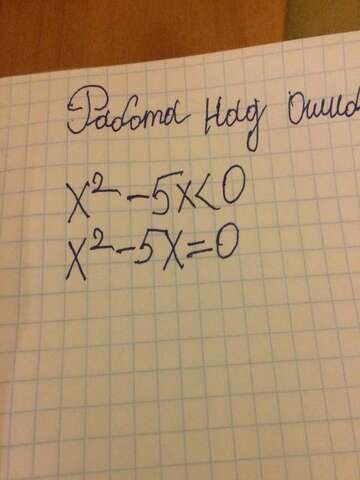 Работа над ошиб
x² - 5x < 0
x² - 5x = 0